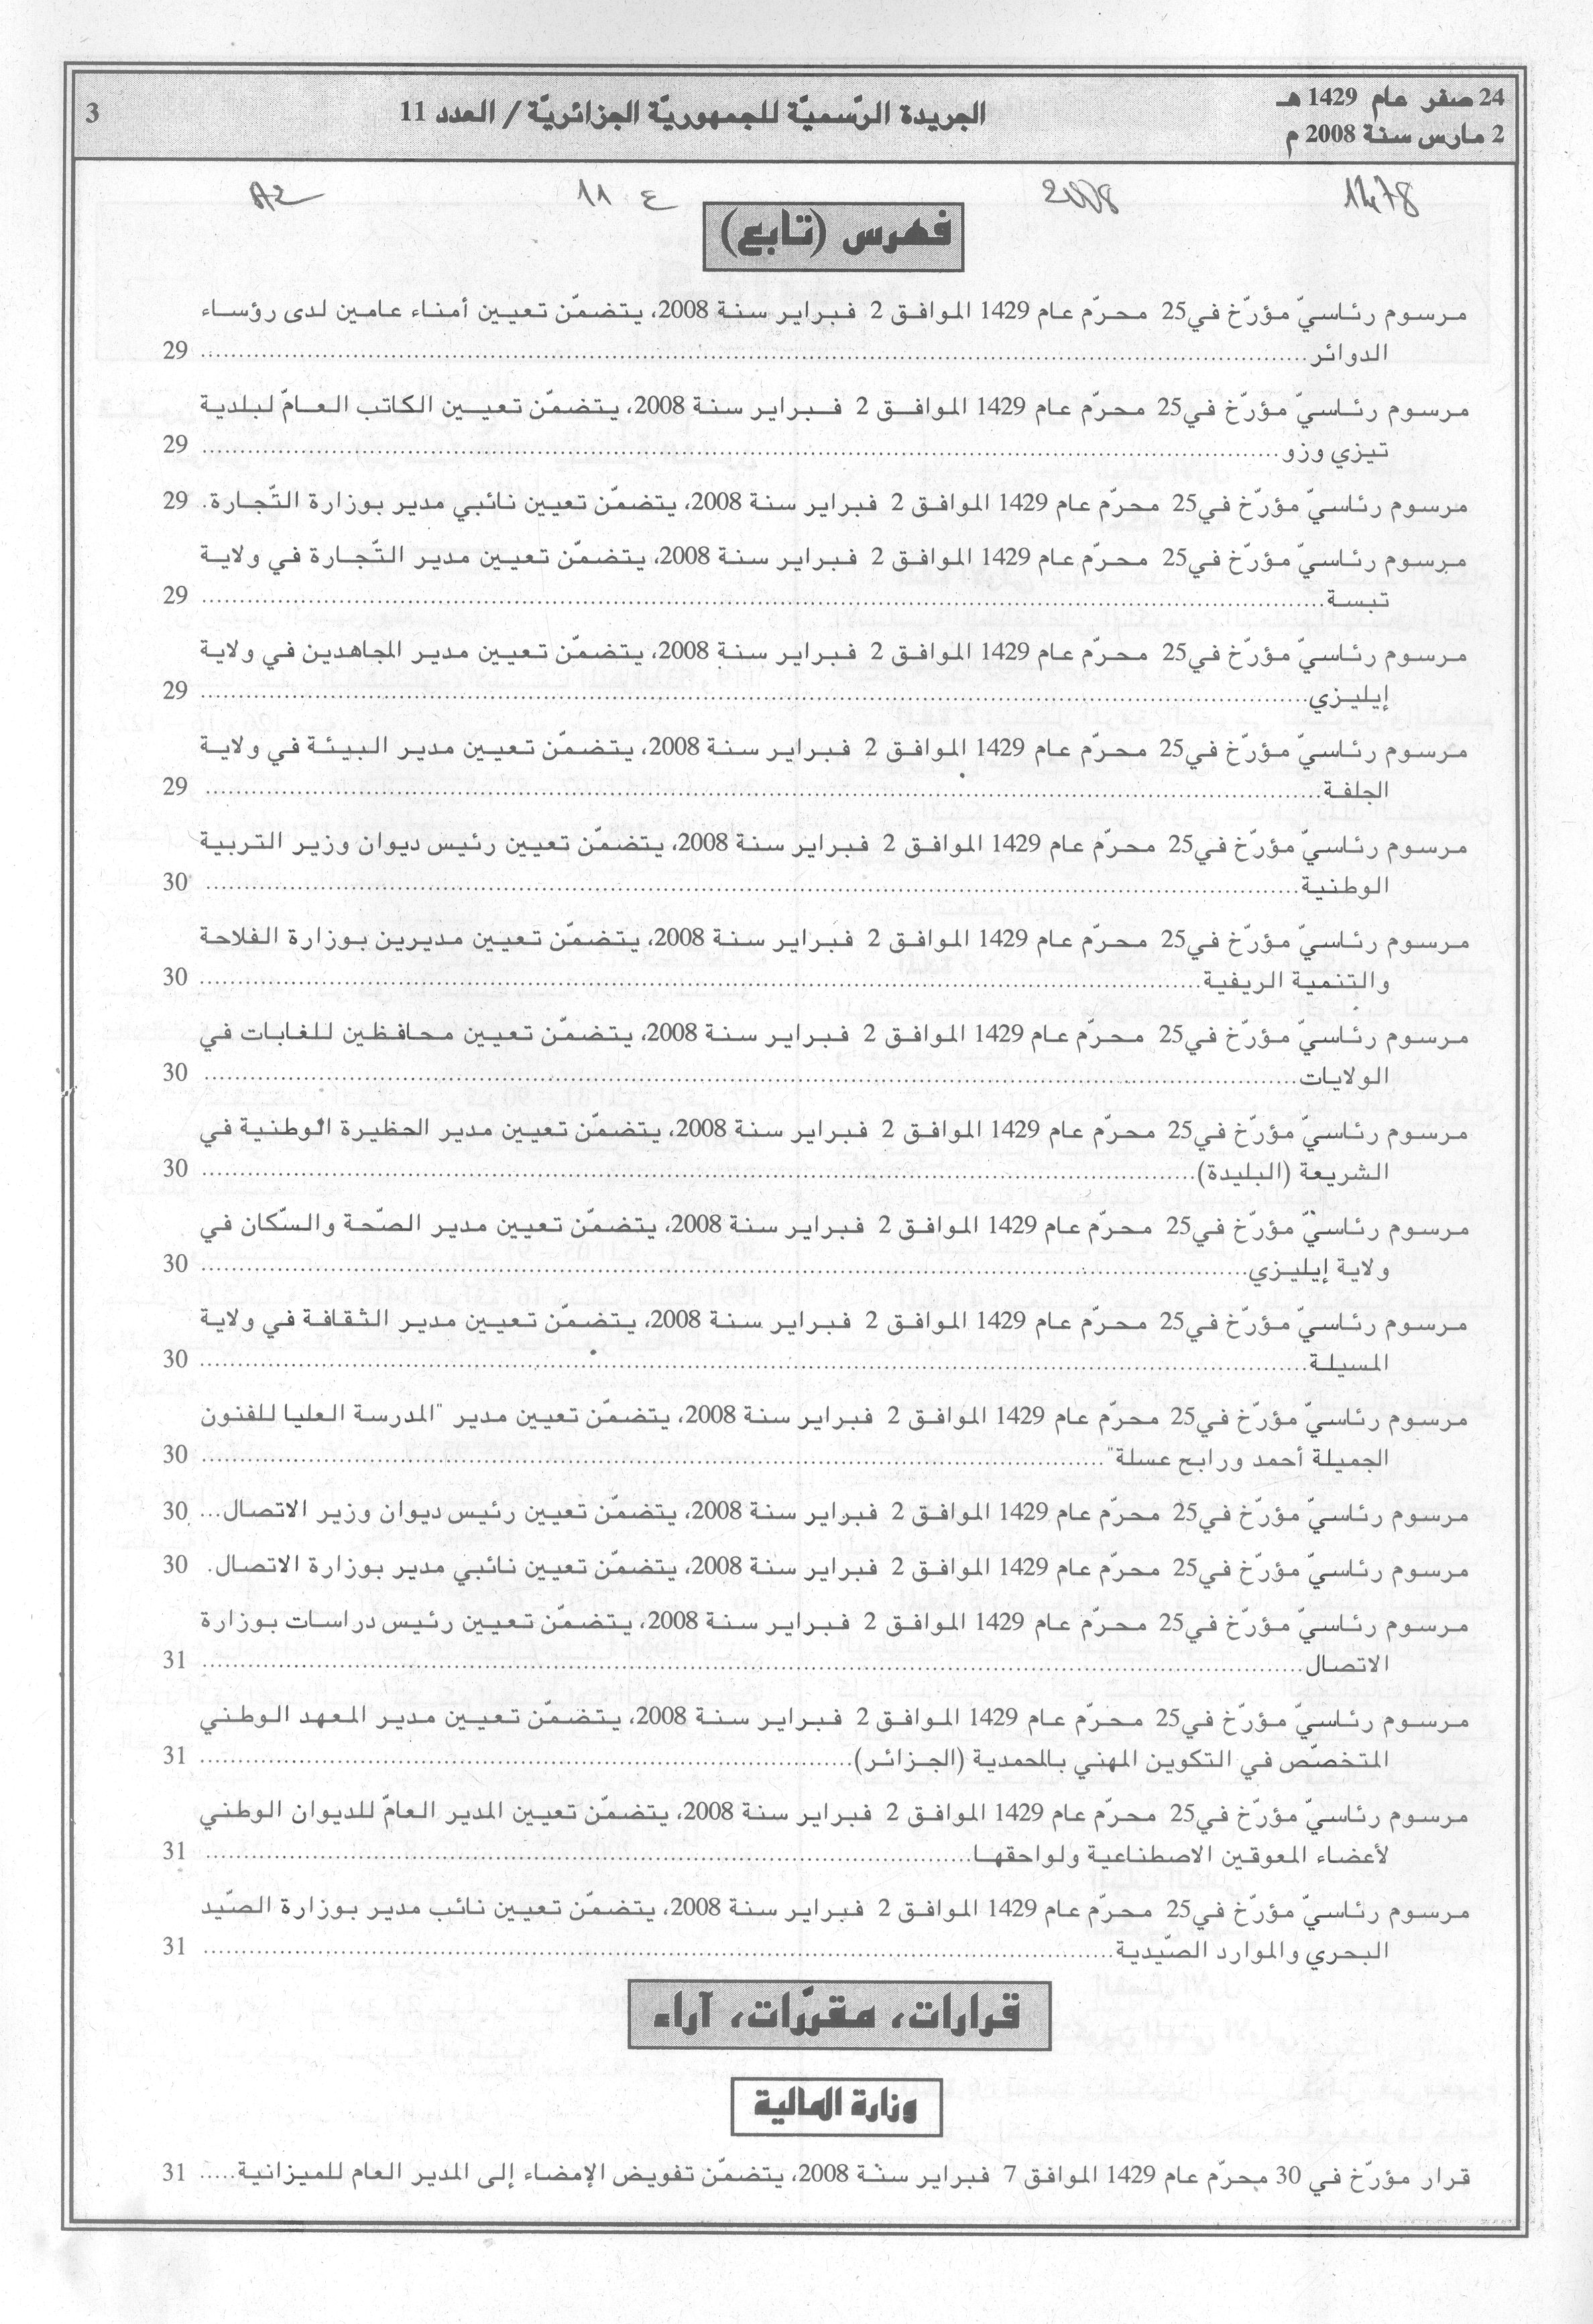 24 صفر عام 1429 هـ
2 مارس سنة 2008 م
الجريدة الرّسميّة للجمهوريّة الجزائريّة / العدد 11
3
2008
ع 11
فهرس (تابع)
مرسوم رئاسيّ مؤرّخ في 25 محرّم عام 1429 الموافق 2 فبراير سنة 2008، يتضمّن تعيين أمناء عامين لدى رؤساء
الدوائر 29
مرسوم رئاسيّ مؤرّخ في 25 محرّم عام 1429 الموافق 2 فبراير سنة 2008، يتضمّن تعيين الكاتب العامّ لبلدية
تيزي وزو 29
مرسوم رئاسيّ مؤرّخ في 25 محرّم عام 1429 الموافق 2 فبراير سنة 2008، يتضمّن تعيين نائبي مدير بوزارة التّجارة. 29
مرسوم رئاسيّ مؤرّخ في 25 محرّم عام 1429 الموافق 2 فبراير سنة 2008، يتضمّن تعيين مدير التّجارة في ولاية
تبسة 29
مرسوم رئاسيّ مؤرّخ في 25 محرّم عام 1429 الموافق 2 فبراير سنة 2008، يتضمّن تعيين مدير المجاهدين في ولاية
إيليزي 29
مرسوم رئاسيّ مؤرّخ في 25 محرّم عام 1429 الموافق 2 فبراير سنة 2008، يتضمّن تعيين مدير البيئة في ولاية
الجلفة 29
مرسوم رئاسيّ مؤرّخ في 25 محرّم عام 1429 الموافق 2 فبراير سنة 2008، يتضمّن تعيين رئيس ديوان وزير التربية
الوطنية 30
مرسوم رئاسيّ مؤرّخ في 25 محرّم عام 1429 الموافق 2 فبراير سنة 2008، يتضمّن تعيين مديرين بوزارة الفلاحة
والتنمية الريفية 30
مرسوم رئاسيّ مؤرّخ في 25 محرّم عام 1429 الموافق 2 فبراير سنة 2008، يتضمّن تعيين محافظين للغابات في
الولايات 30
مرسوم رئاسيّ مؤرّخ في 25 محرّم عام 1429 الموافق 2 فبراير سنة 2008، يتضمّن تعيين مدير الحظيرة الوطنية في
الشريعة (البليدة) 30
مرسوم رئاسيّ مؤرّخ في 25 محرّم عام 1429 الموافق 2 فبراير سنة 2008، يتضمّن تعيين مدير الصّحة والسّكان في
ولاية إيليزي 30
مرسوم رئاسيّ مؤرّخ في 25 محرّم عام 1429 الموافق 2 فبراير سنة 2008، يتضمّن تعيين مدير الثقافة في ولاية
المسيلة 30
مرسوم رئاسيّ مؤرّخ في 25 محرّم عام 1429 الموافق 2 فبراير سنة 2008، يتضمّن تعيين مدير "المدرسة العليا للفنون
الجميلة أحمد ورابح عسلة" 30
مرسوم رئاسيّ مؤرّخ في 25 محرّم عام 1429 الموافق 2 فبراير سنة 2008، يتضمّن تعيين رئيس ديوان وزير الاتصال... 30
مرسوم رئاسيّ مؤرّخ في 25 محرّم عام 1429 الموافق 2 فبراير سنة 2008، يتضمّن تعيين نائبي مدير بوزارة الاتصال. 30
مرسوم رئاسيّ مؤرّخ في 25 محرّم عام 1429 الموافق 2 فبراير سنة 2008، يتضمّن تعيين رئيس دراسات بوزارة
الاتصال 31
مرسوم رئاسيّ مؤرّخ في 25 محرّم عام 1429 الموافق 2 فبراير سنة 2008، يتضمّن تعيين مدير المعهد الوطني
المتخصّص في التكوين المهني بالمحمدية (الجزائر) 31
مرسوم رئاسيّ مؤرّخ في 25 محرّم عام 1429 الموافق 2 فبراير سنة 2008، يتضمّن تعيين المدير العامّ للديوان الوطني
لأعضاء المعوقين الاصطناعية ولواحقها 31
مرسوم رئاسيّ مؤرّخ في 25 محرّم عام 1429 الموافق 2 فبراير سنة 2008، يتضمّن تعيين نائب مدير بوزارة الصّيد
البحري والموارد الصّيدية 31
قرارات، مقرّرات، آراء
وزارة المالية
قرار مؤرّخ في 30 محرّم عام 1429 الموافق 7 فبراير سنة 2008، يتضمّن تفويض الإمضاء إلى المدير العام للميزانية..... 31